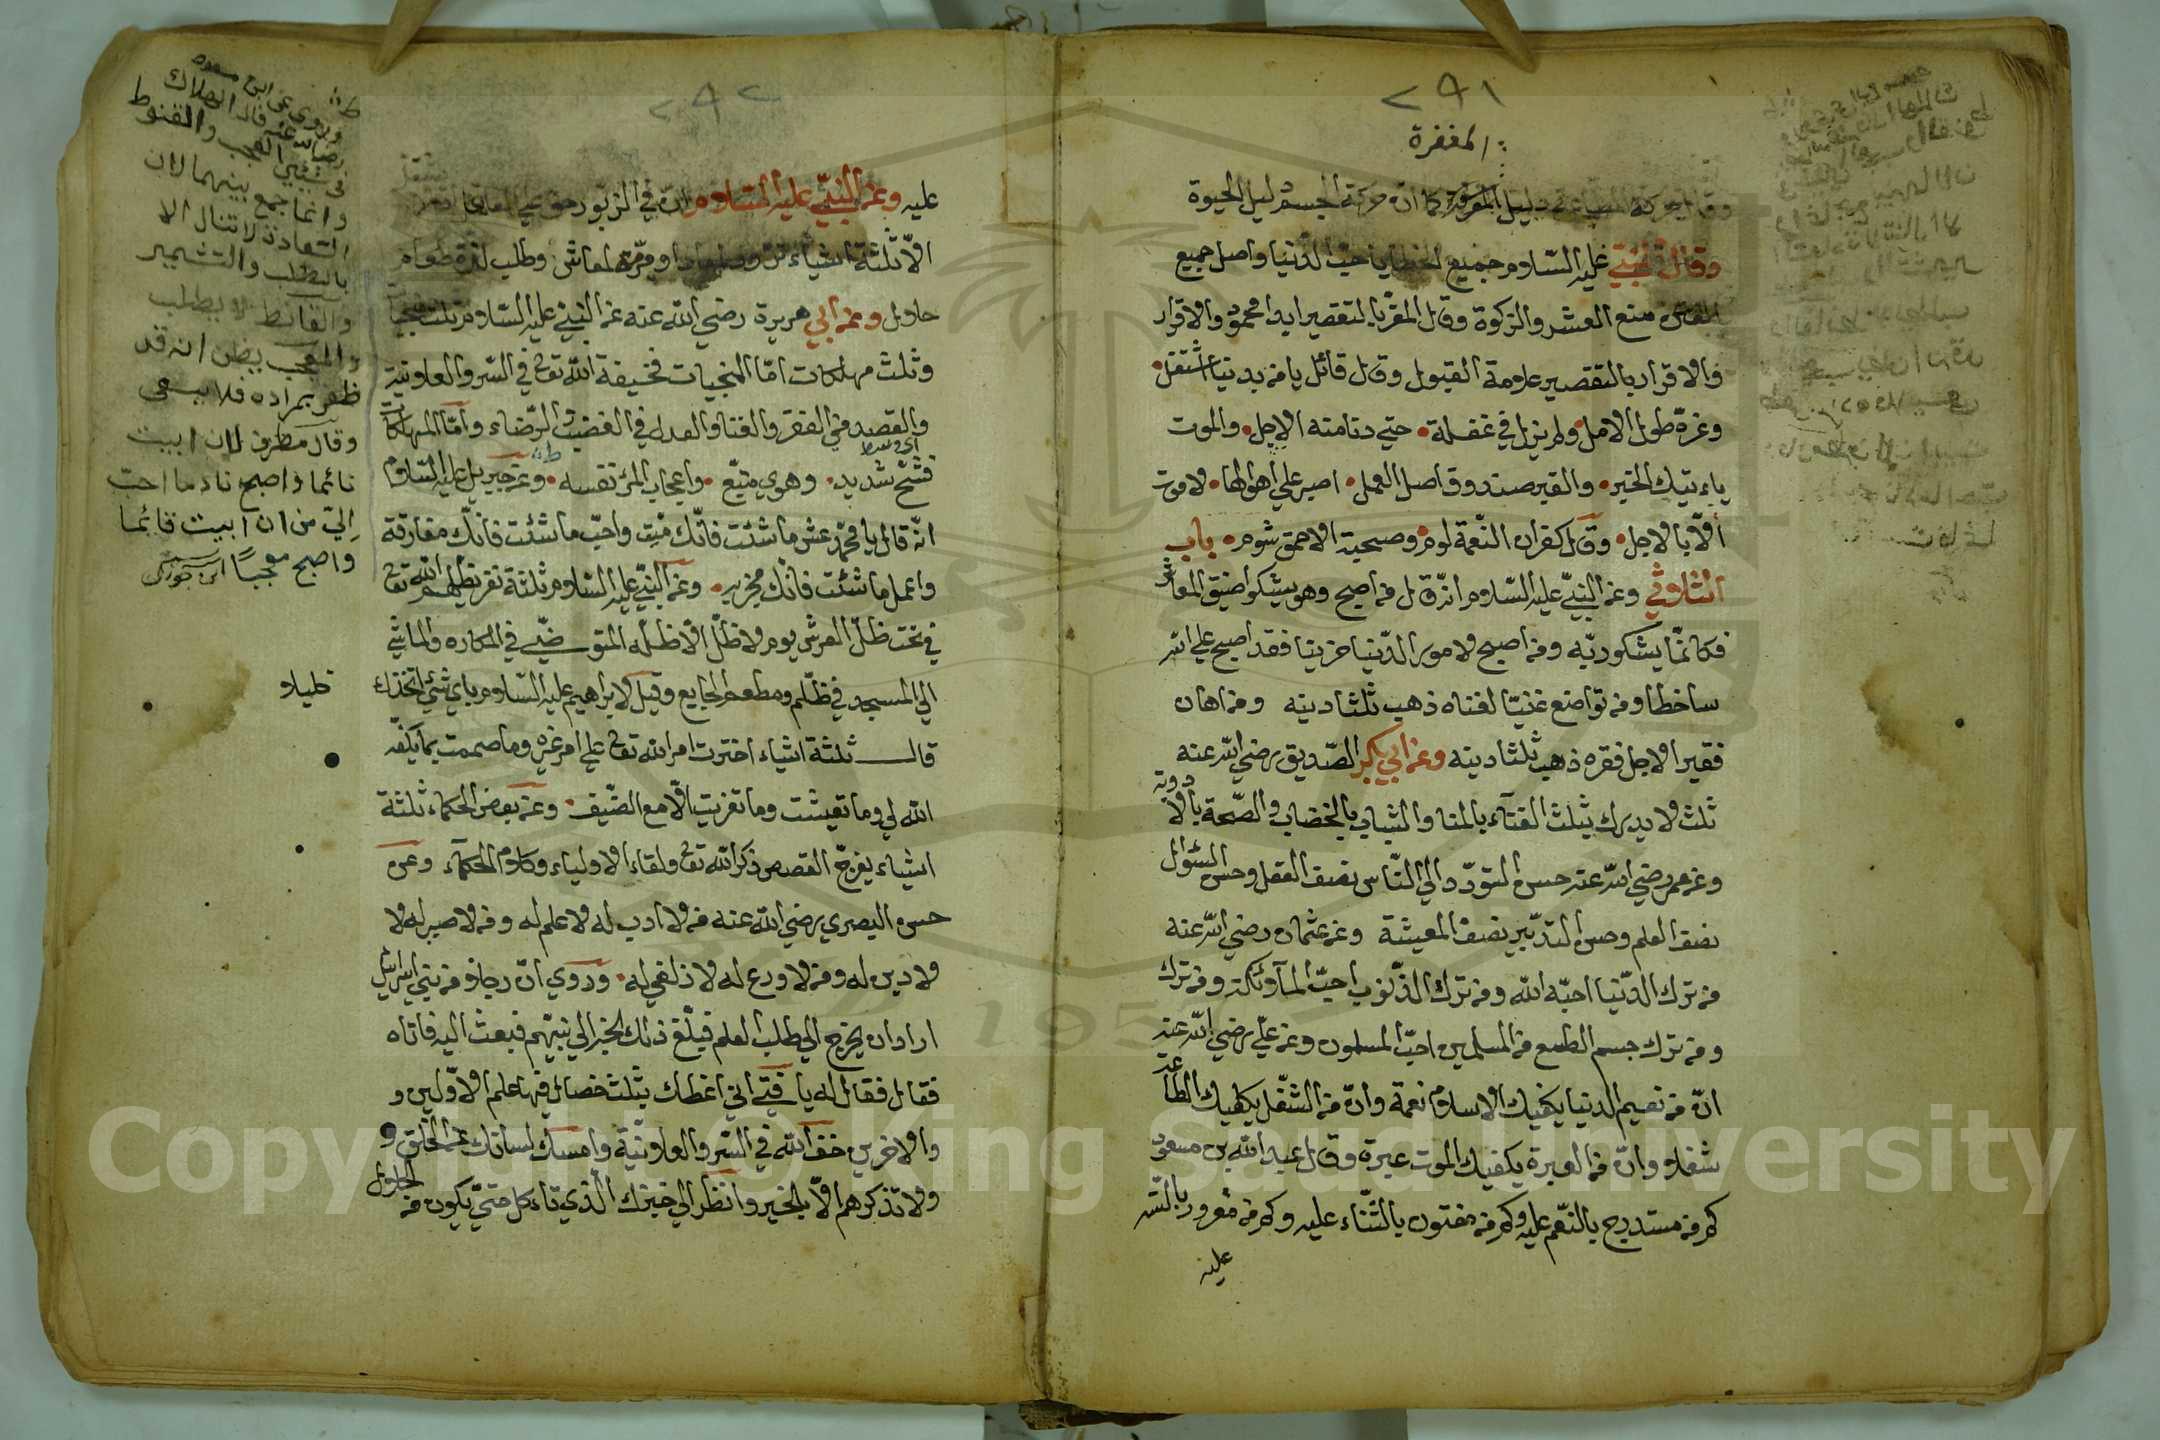 ٢٩١
المغفرة
وقيل حركة الطاعة دليل المعرفة كما ان حركة الجسم دليل الحيوة
وقال النبي عليه السلام جميع الخطايا حب الدنيا واصل جميع
الفتن منع العشر والزكوة وقال المقر بالتقصير ابدا محمود والاقرار
والاقرار بالتقصير علامة القبول وقال قائل يا من بدنياه اشتغل
وغرّه طول الامل ولم يزل في غفلة حتى دنا منه الاجل والموت
يأتيك الخبر والقبر صندوق اصل العمل اصبر على اهوالها لا موت
الّا بالاجل وقال كفران النعمة لوم وصحبة الاحمق شوم باب
الثلاثي وعن النبي عليه السلام انه قال من اصبح وهو يشكوا ضيق المعاش
فكانّما يشكو ربّه ومن اصبح لامور الدّنيا حزينا فقد اصبح على الله
ساخطا ومن تواضع غنيّا لغناه ذهب ثلثا دينه ومن اهان
فقيرا لاجل فقره ذهب ثلثا دينه وعن ابي بكر الصّديق رضي الله عنه
ثلث لا يدرك بثلث الغناء بالمنا والشباب بالخضاب والصّحة بالادوية
وعن عمر رضي الله عنه حسن التودّد الى النّاس نصف العقل وحسن السّئوال
نصف العلم وحسن التدبّير نصف المعيشة وعن عثمان رضي الله عنه
من ترك الدّنيا احبّه الله ومن ترك الذّنوب احبّ الملآئكة ومن ترك
ومن ترك جسم الطمع من المسلمين احبّ المسلمون وعن علي رضي الله عنه
انّ من نعيم الدنيا يكفيك الاسلام نعمة وانّ من الشّغل يكفيك الطاعة
شغلا وانّ من العبرة يكفيك الموت عبرة وقال عبد الله بن مسعود
كم من مستدرج بالنّعم عليه وكم من مفتون بالثّناء عليه وكم من مغرور بالسّتر
عليه
٢٩٢
عليه وعن النبيّ عليه السّلام انّ في الزبور حق على العاقل ان لا يشتغل
الّا ثلثة اشياء تزود لمعاد او مرّمة لمعاش وطلب لذة طعام
حلال وعن ابي هريرة رضي الله عنه عن النبي عليه السّلام ثلث منجيات
وثلث مهلكات امّا المنجيات فخيفة الله تعالى في السّر والعلانية
والقصد في الفقر والغنا والعدل في الغضب والرّضاء وامّا المهلكات
فشحّ شديد وهوى متبّع واعجاب المرء نفسه وعن جبريل عليه السّلام
انّه قال يا محمّد عش ما شئت فانّك ميّت واحبّ ما شئت فانّك مفارقة
واعمل ما شئت فانّك مجزي به وعن النبيّ عليه السّلام ثلثة نفر يظلهم الله تعالى
في تحت ظلّ العرش يوم لا ظلّ الّا ظلّه المتوضّي في المكاره والماشي
الى المسجد في ظّلم ومطعم الجايع وقيل لابراهيم عليه السّلام باي شئ اتّخذك
خليلا
قال ثلثة اشياء اخترت امر الله تعالى على امر غيره وما صممت بما يكفّه
الله لي وما تعيشت وما تغزيت الّا مع الضّيف وعن بعض الحكماء ثلثة
اشياء يفرجّ القصص ذكر الله تعالى ولقاء الاولياء وكلام الحكمآء وعن
حسن البصري رضي الله عنه من لا ادب له لا علم له ومن لا صبر له لا
لا دين له ومن لا ورع له لا ذلفى له وروي انّ رجلا من بني اسرائيل
اراد ان يخرج الى طلب العلم فبلّغ ذلك الخبر الى نبيّهم فبعث اليه فاتاه
فقال فقال له يا فتى انى اعظك بثلث خصال فيها علم الاوّلين و
والاخرين خف الله في السّر والعلانيّة وامسك لسانك عن الخلق و
ولا تذكرهم الّا بالخير وانظر الى خبزك الّذي تاءكل حتى يكون من
الحلال
وروى عن ابن مسعود
رضى الله عنه قال الهلاك
فى شيئين العجب والقنوط
وانما جمع بينهما لان
السعادة لا تنال الا
بالطلب والتشمير
والقانط لا يطلب
والمعجب يظن انه قد
ظفر بمراده فلا يسعى
وقال مطرف لان ابيت
نائما واصبح نادما احبّ
اليّ من ان ابيت قائما
واصبح معجبا
Copyright © King Saud University
195